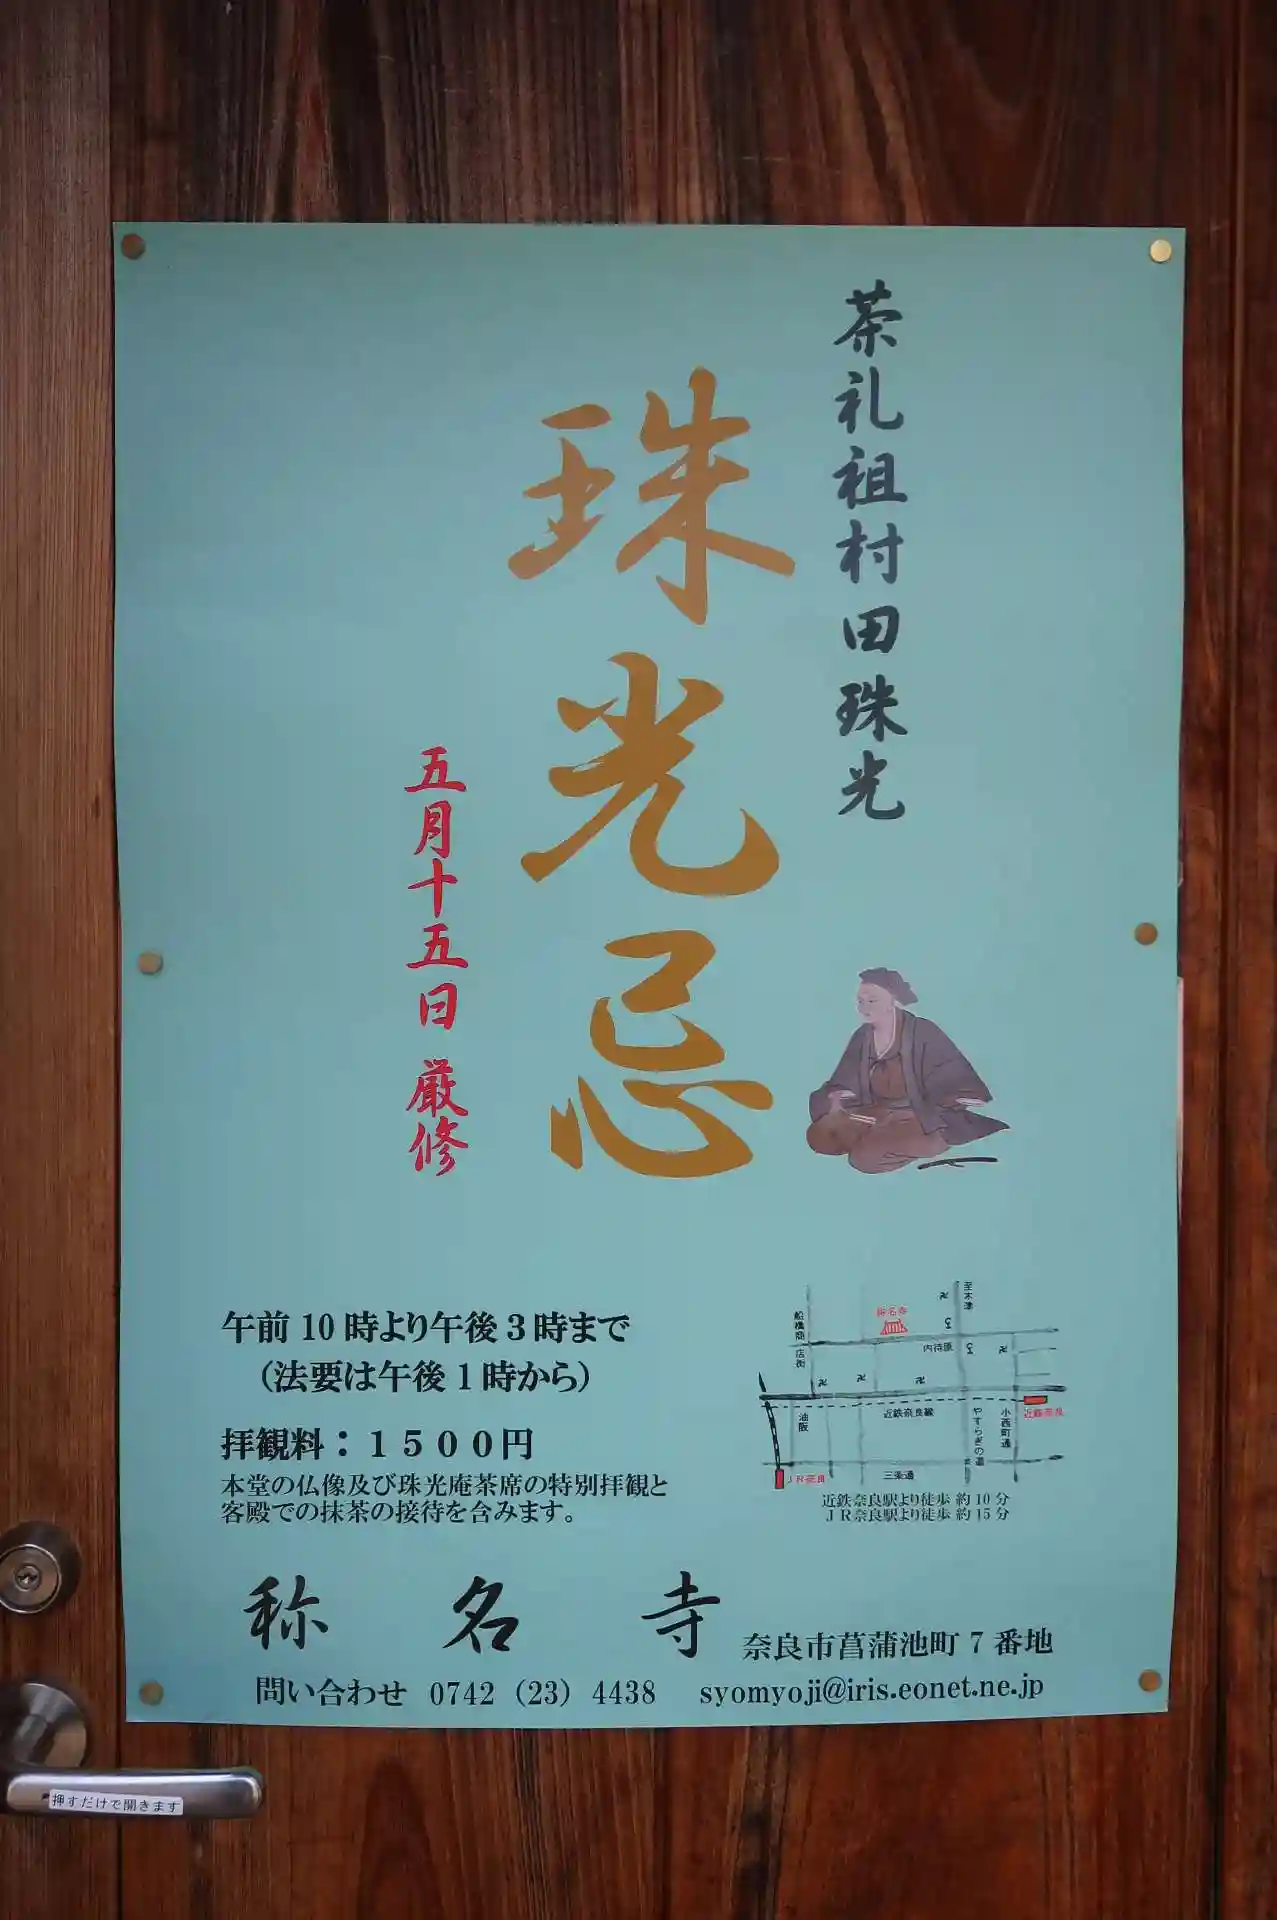 茶礼祖村田珠光
珠光忌
五月十五日 厳修
午前10時より午後3時まで
（法要は午後1時から）
拝観料：１５００円
本堂の仏像及び珠光庵茶席の特別拝観と
客殿での抹茶の接待を含みます。
至木津
船橋商店街
称名寺
内侍原
油阪
近鉄奈良線
やすらぎの道
小西町通
近鉄奈良
ＪＲ奈良
三条通
近鉄奈良駅より徒歩 約10分
ＪＲ奈良駅より徒歩 約15分
称名寺
奈良市菖蒲池町7番地
問い合わせ 0742（23）4438 syomyoji@iris.eonet.ne.jp
押すだけで開きます